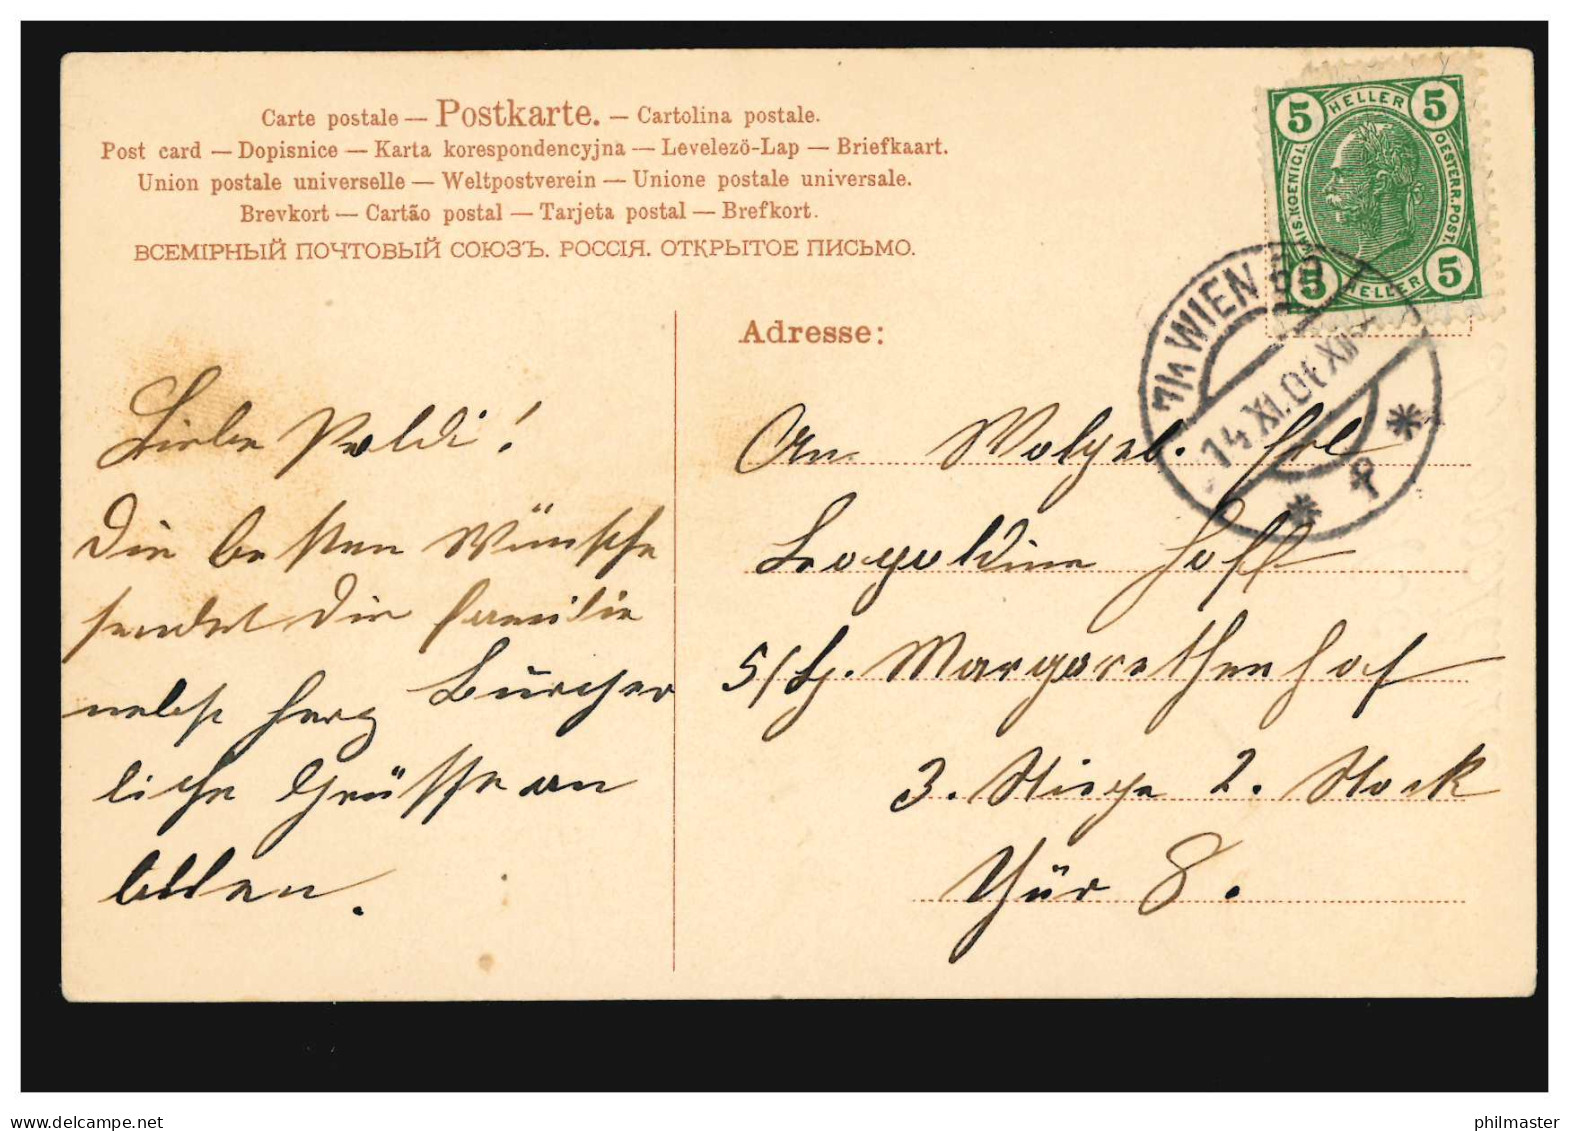 Carte postale — Postkarte. — Cartolina postale.
Post card — Dopisnice — Karta korespondencyjna — Levelezö-Lap — Briefkaart.
Union postale universelle — Weltpostverein — Unione postale universale.
Brevkort — Cartão postal — Tarjeta postal — Brefkort.
ВСЕМІРНЫЙ ПОЧТОВЫЙ СОЮЗЪ. РОССІЯ. ОТКРЫТОЕ ПИСЬМО.
5 HELLER 5
KAIS. KOENIGL. OESTERR. POST.
5 HELLER 5
WIEN
14 XI
Adresse:
Liebe Poldi!
Die besten Wünsche
sendet die Familie
Bürger
nebst herz
liche Grüsse an
Allen.
An Wolgeb. Frl
Leopoldine Hoff
5/ Margarethenhof
3. Stiege 2. Stock
Thür 8.
www.delcampe.net
philmaster